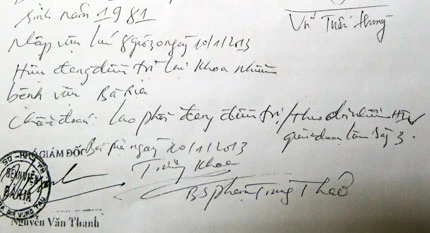 Sinh năm 1981
Vũ Tuấn Hưng
nhập viện lúc 8 giờ 30 ngày 10/1/2013
Hiện đang điều trị tại khoa nhiễm
bệnh viện Bà Rịa
chẩn đoán: lao phổi đang điều trị / theo dõi nhiễm HIV
giai đoạn lâm sàng 3.
GIÁM ĐỐC
Bà Rịa ngày 10/1/2013
Trưởng Khoa
BỆNH VIỆN
BÀ RỊA
BS Phan Trung Thảo
Nguyễn Văn Thanh